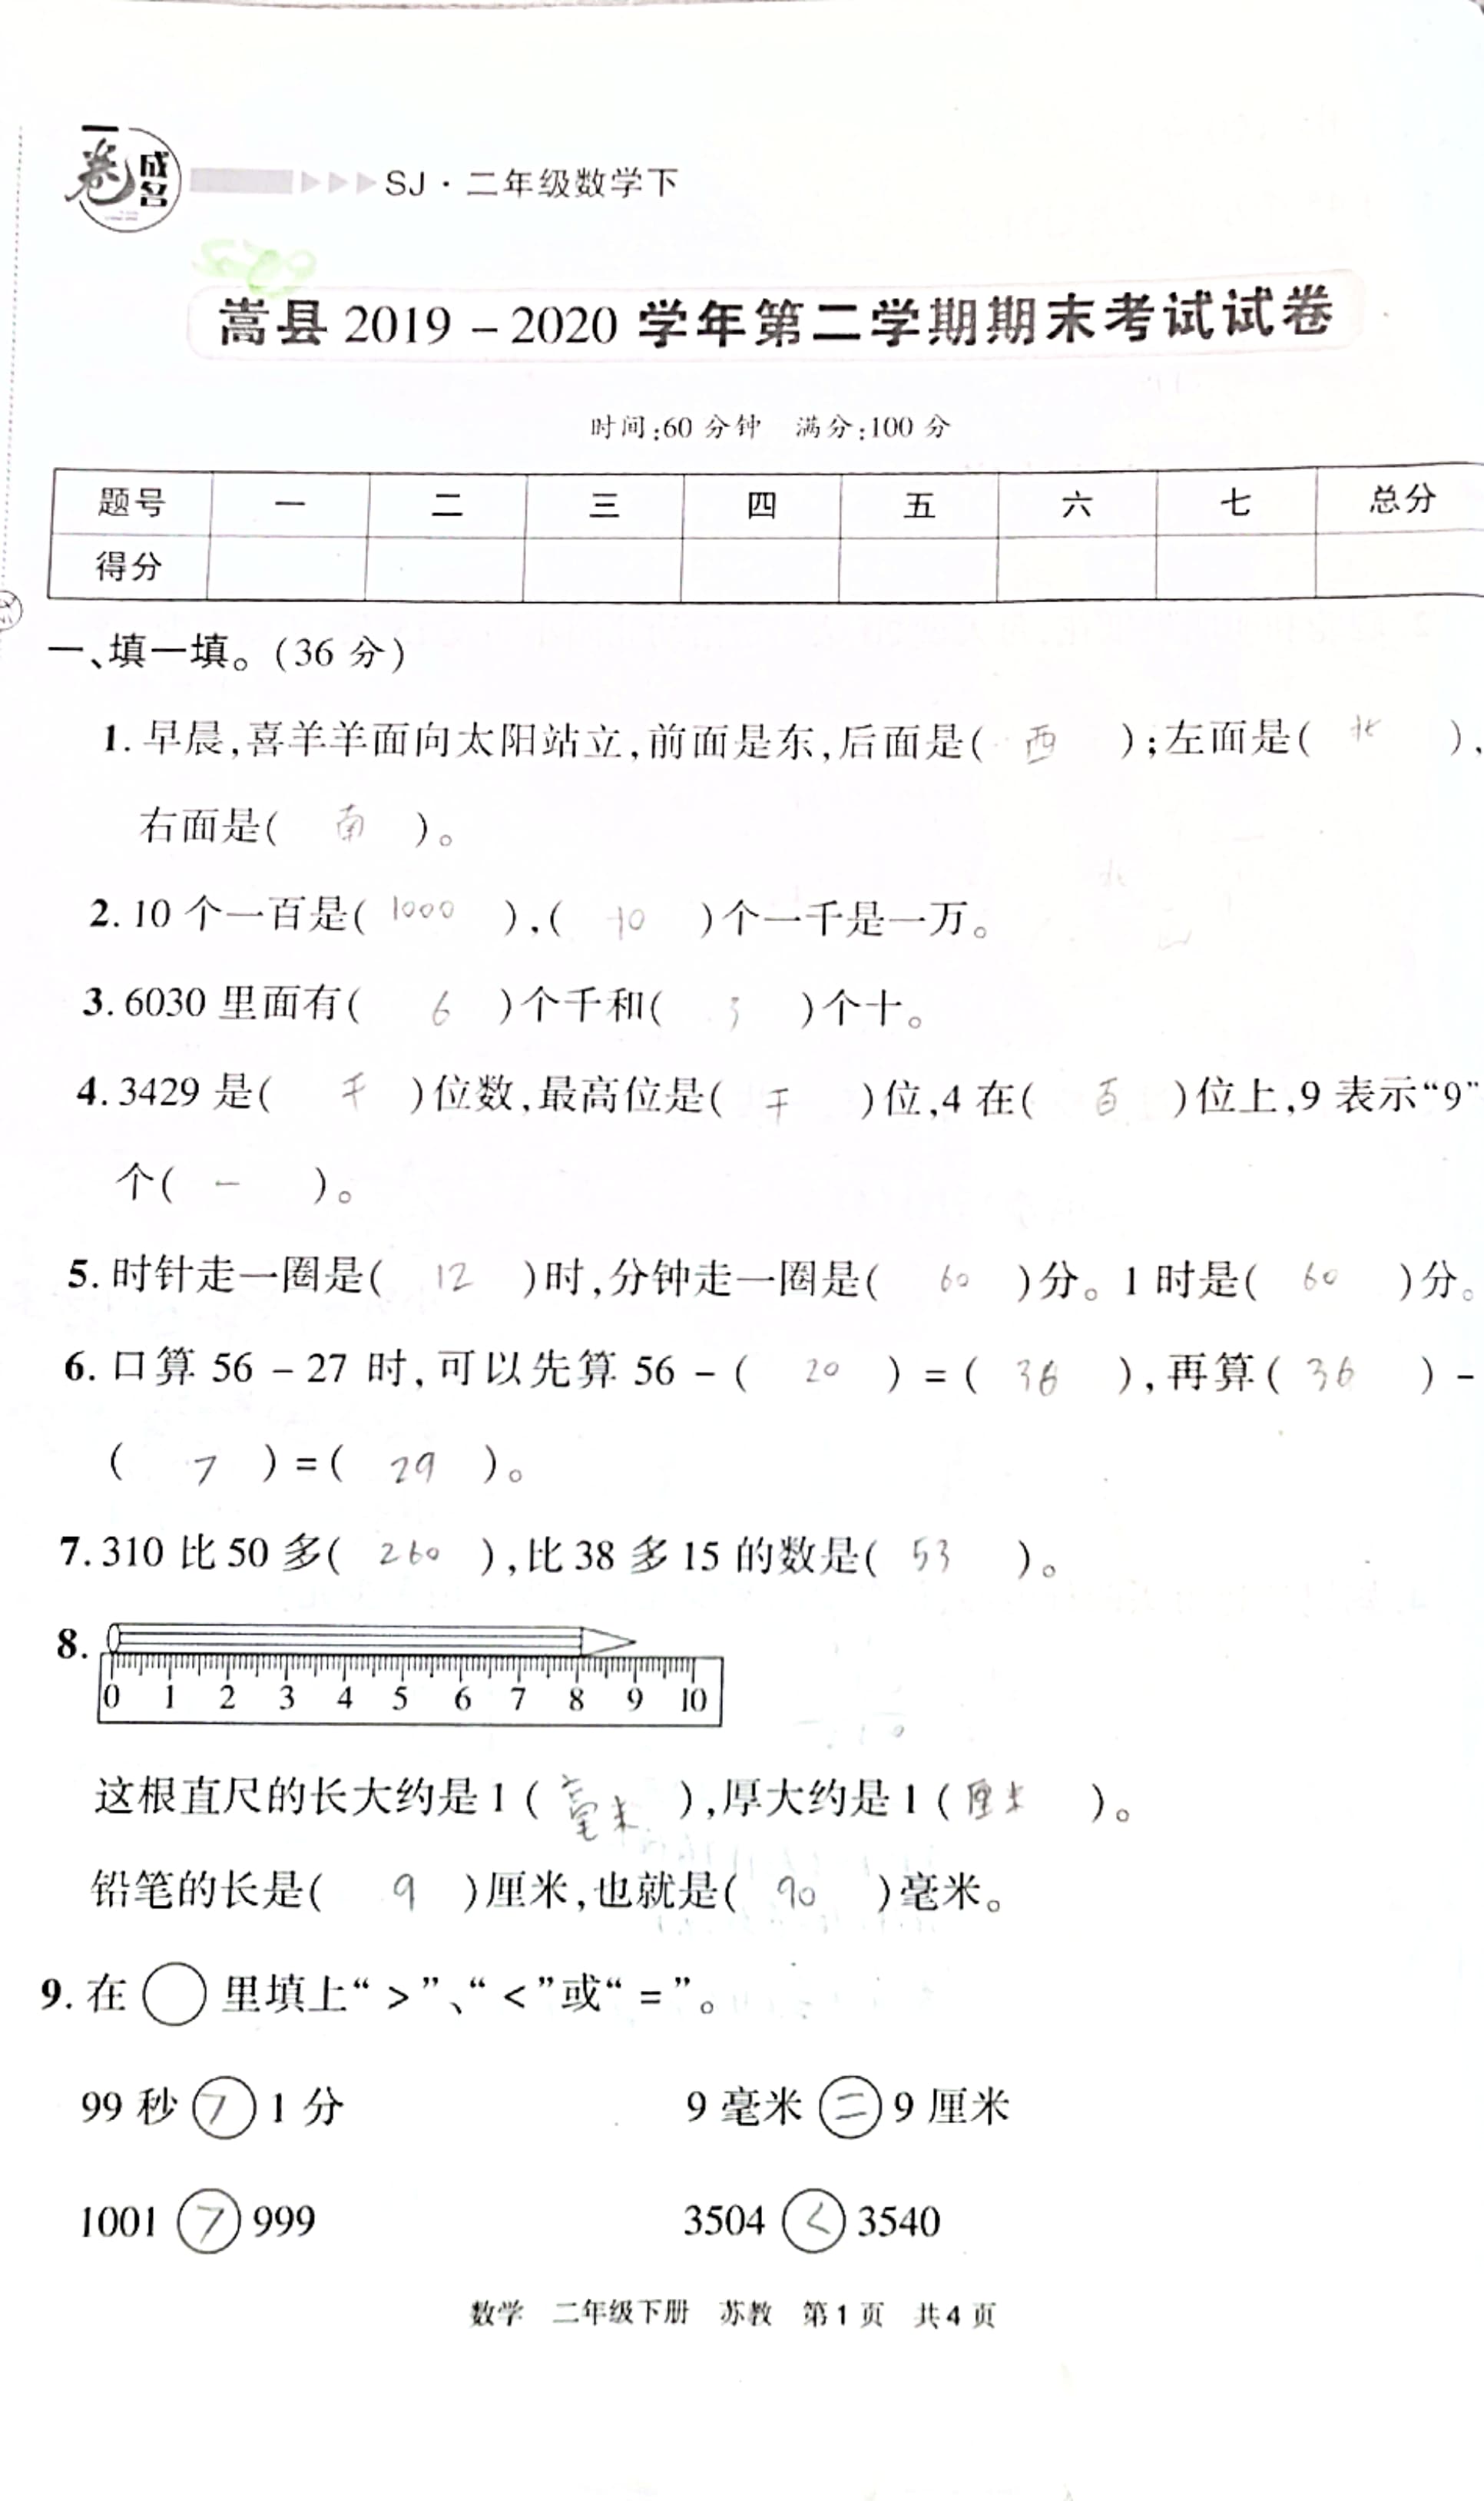 一卷成名
SJ·二年级数学下
嵩县2019-2020学年第二学期期末考试试卷
时间:60分钟 满分:100分
题号 一 二 三 四 五 六 七 总分
得分
一、填一填。(36分)
1.早晨,喜羊羊面向太阳站立,前面是东,后面是( 西 );左面是( 北 ),
右面是( 南 )。
2.10个一百是( 1000 ),( 10 )个一千是一万。
3.6030里面有( 6 )个千和( 3 )个十。
4.3429是( 千 )位数,最高位是( 千 )位,4在( 百 )位上,9表示“9”
个( 一 )。
5.时针走一圈是( 12 )时,分钟走一圈是( 60 )分。1时是( 60 )分。
6.口算56-27时,可以先算56-( 20 )=( 36 ),再算( 36 )-
( 7 )=( 29 )。
7.310比50多( 260 ),比38多15的数是( 53 )。
8.
0 1 2 3 4 5 6 7 8 9 10
这根直尺的长大约是1( 毫米 ),厚大约是1( 厘米 )。
铅笔的长是( 9 )厘米,也就是( 90 )毫米。
9.在○里填上“>”、“<”或“=”。
99秒 > 1分 9毫米 = 9厘米
1001 > 999 3504 < 3540
数学 二年级下册 苏教 第1页 共4页